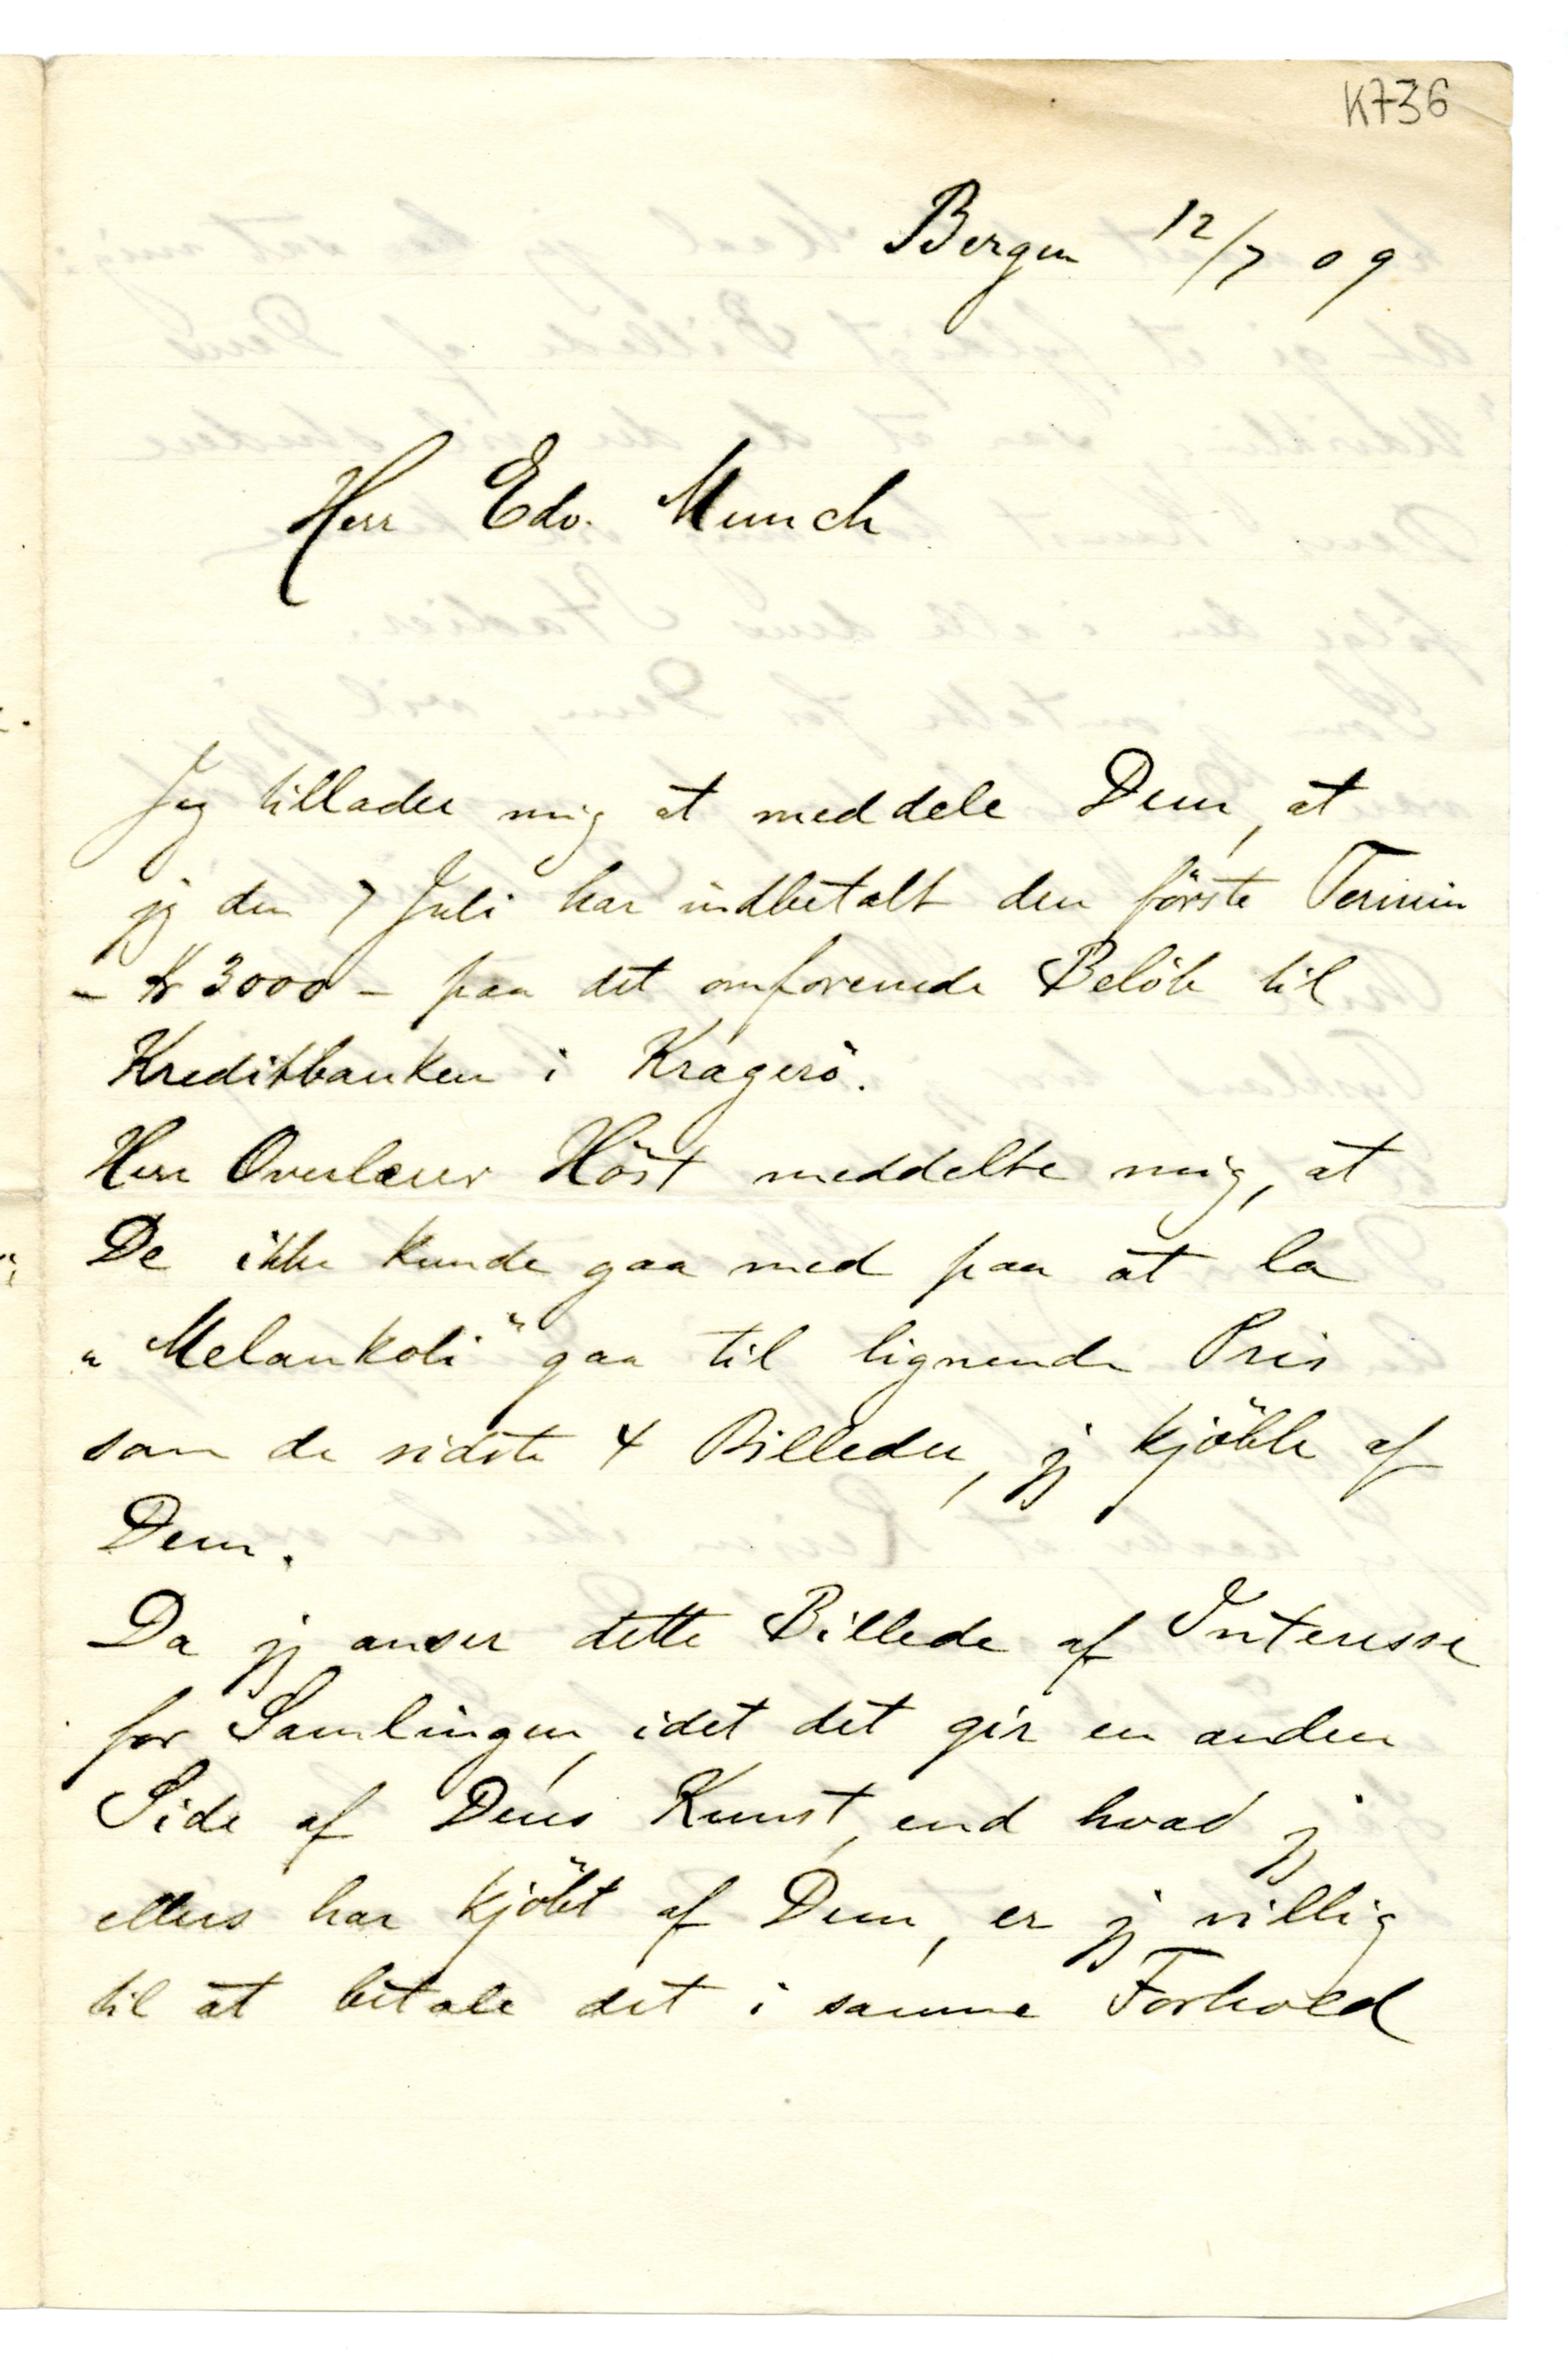 K736
Bergen 12/7 09
Herr Edv. Munch
Jeg tillader mig at meddele Dem, at
jeg den 7 Juli har indbetalt den förste Termin
– Kr 3000 – paa det omforenede Belöb til
Kreditbanken i Kragerö.
Herr Overlærer Höst meddelte mig, at
De ikke kunde gaa med paa at la
"Melankoli" gaa til lignende Pris
som de sidste 4 Billeder, jeg kjöbte af
Dem.
Da jeg anser dette Billede af Interesse
for Samlingen, idet det gir en anden
Side af Deres Kunst, end hvad jeg
ellers har kjöbt af Dem, er jeg villig
til at betale det i samme Forhold